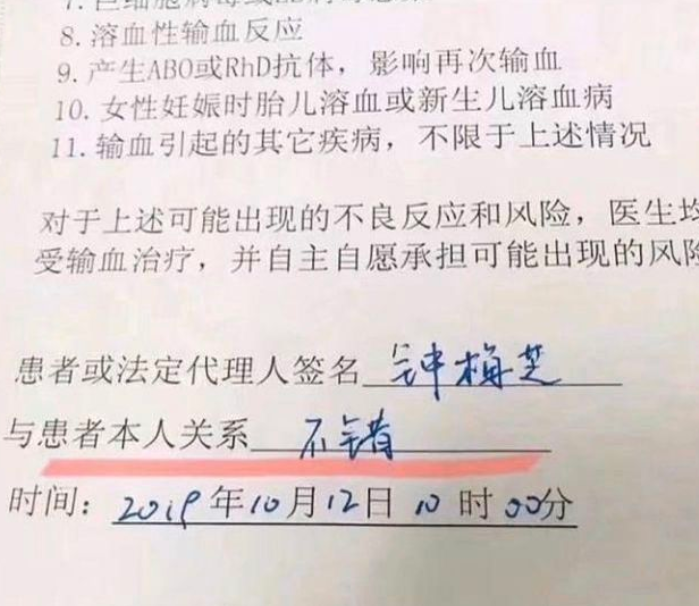 8. 溶血性输血反应
9. 产生ABO或RhD抗体，影响再次输血
10. 女性妊娠时胎儿溶血或新生儿溶血病
11. 输血引起的其它疾病，不限于上述情况
对于上述可能出现的不良反应和风险，医生均
受输血治疗，并自主自愿承担可能出现的风险
患者或法定代理人签名 钟梅芝
与患者本人关系 不错
时间：2019年10月12日 10时00分